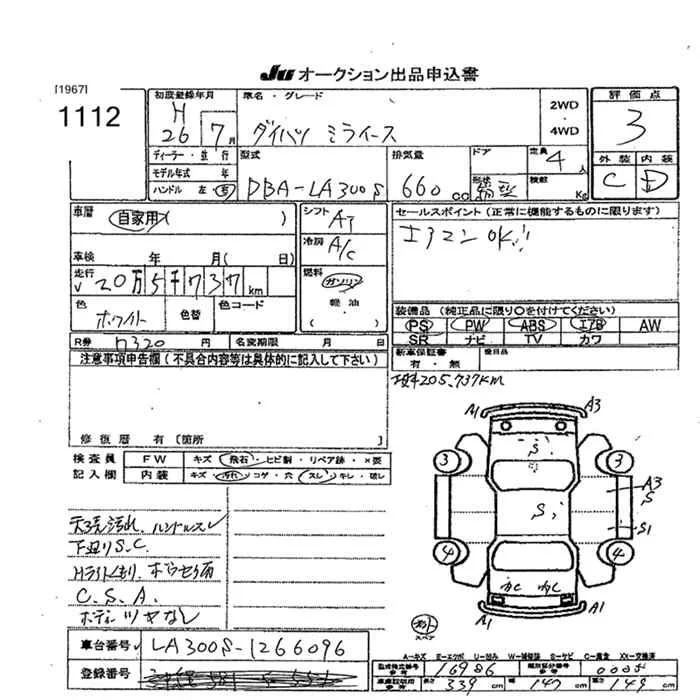 JU オークション出品申込書
[1967]
1112
初度登録年月
H
26 7月
車名・グレード
ダイハツ ミライース
2WD
・
4WD
評価点
3
外装 内装
C D
ディーラー・並行
モデル年式 年
ハンドル 左 右
型式
DBA-LA300S
排気量
660 cc
ドア
形状
定員
4人
積載
Kg
車歴
自家用( )
車検 年 月( 日)
走行
20万5千737km
色
ホワイト
色替
色コード
R券 円
名変期限 月 日
シフト
AT
冷房
A/C
燃料
ガソリン
軽油
( )
セールスポイント (正常に機能するものに限ります)
エアコンOK!!
装備品 (純正品に限り○を付けてください)
PS PW ABS エアB AW
SR ナビ TV カワ
新車保証書
有・無
後日品
205,737km
注意事項申告欄(不具合内容等は具体的に記入して下さい)
修復歴 有 [箇所 ]
検査員
記入欄
FW キズ・飛石・ヒビ割・リペア跡・×要
内装 キズ・汚れ・コゲ・穴・スレ・キレ・破レ
天張汚れ、ハンドルスレ
下廻りS.C.
C.S.A.
ボディツヤなし
A1 A3
S
3 3
A3
S
S
S1
4 4
A1 A1
スペア
車台番号
LA300S-1266096
登録番号
A=キズ E=エクボ U=凹み W=補修跡 S=サビ C=腐食 XX=交換済
型式指定番号
16986
類別区分番号
0005
長さ 339 cm
幅 147 cm
高さ 149 cm